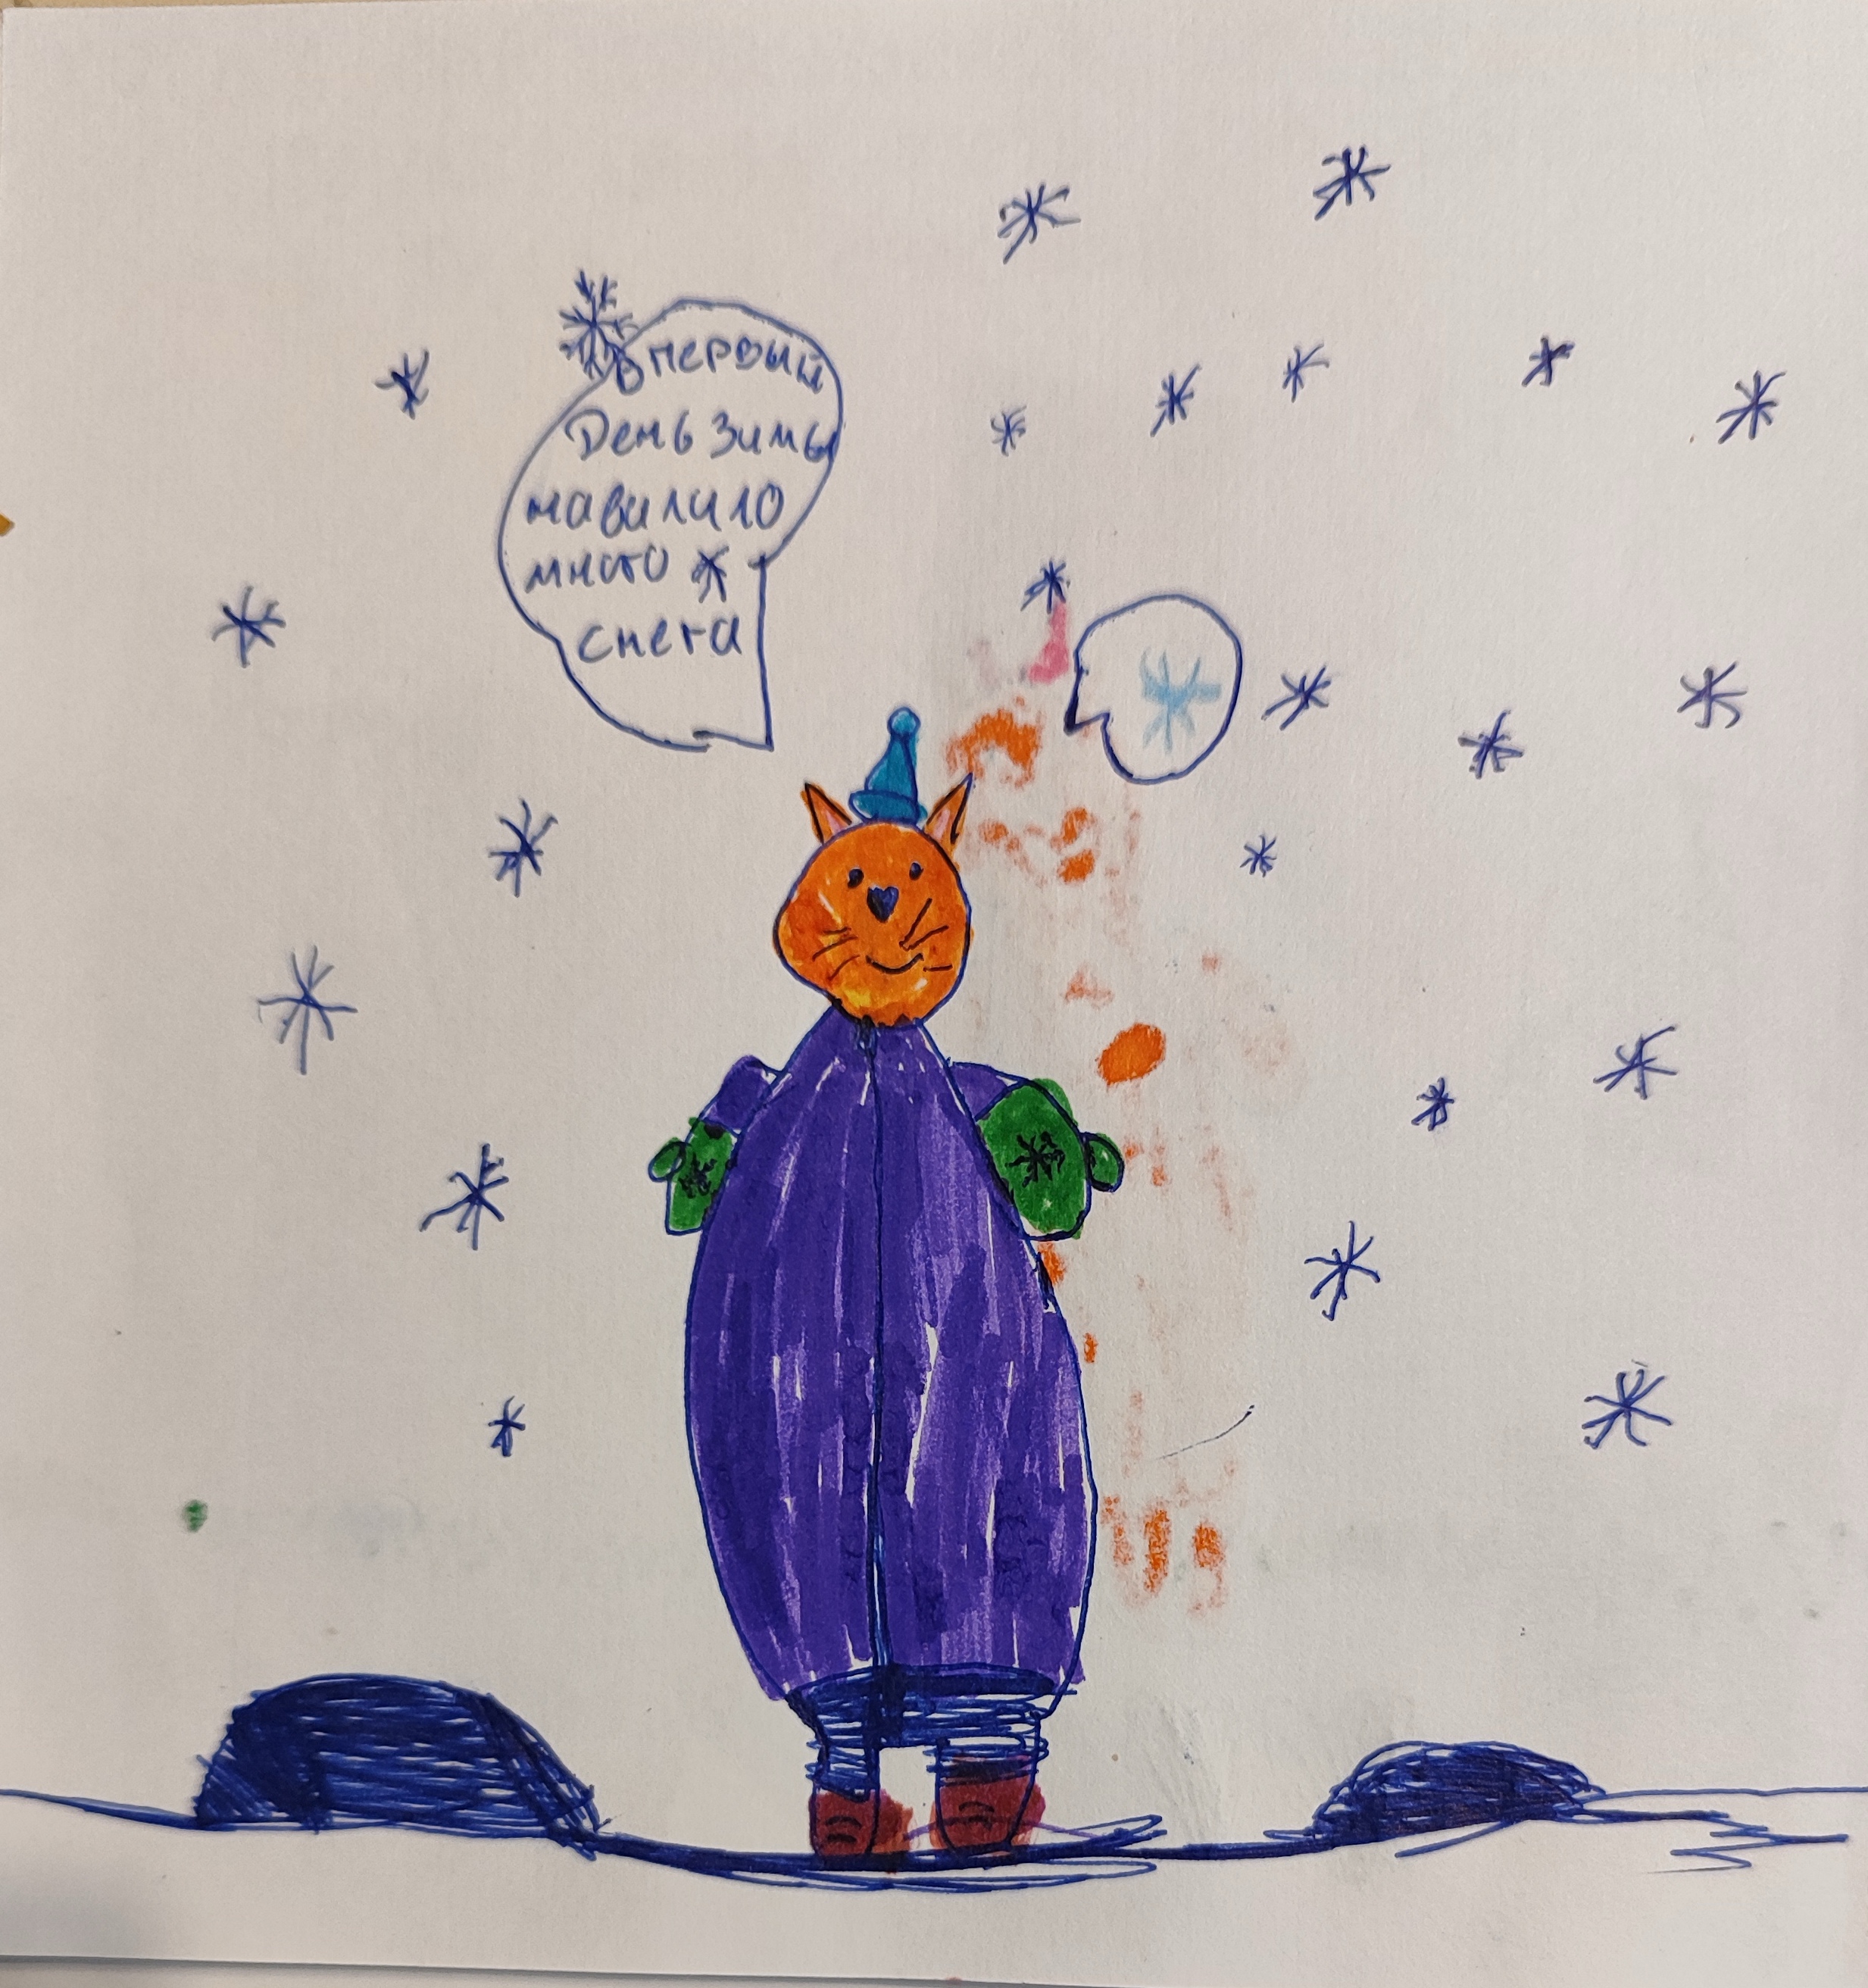 В первый
День зимы
навилило
много
снега